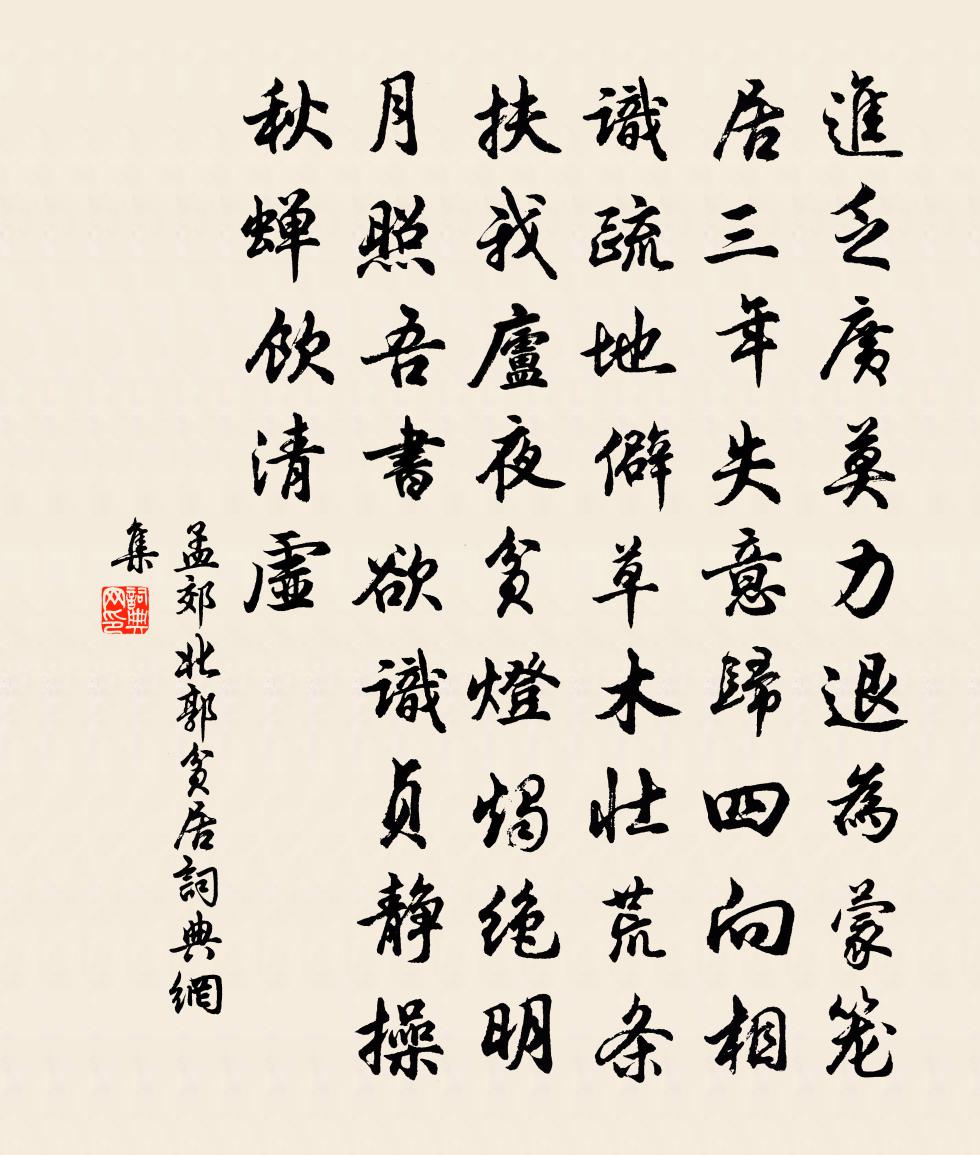 進乏廣莫力退為蒙笼
居三年失意歸四向相
識疏地僻草木壮荒条
扶我廬夜貧燈燭绝明
月照吾書欲識贞静操
秋蝉飲清虚
孟郊北郭貧居詞典網
集
詞典网印